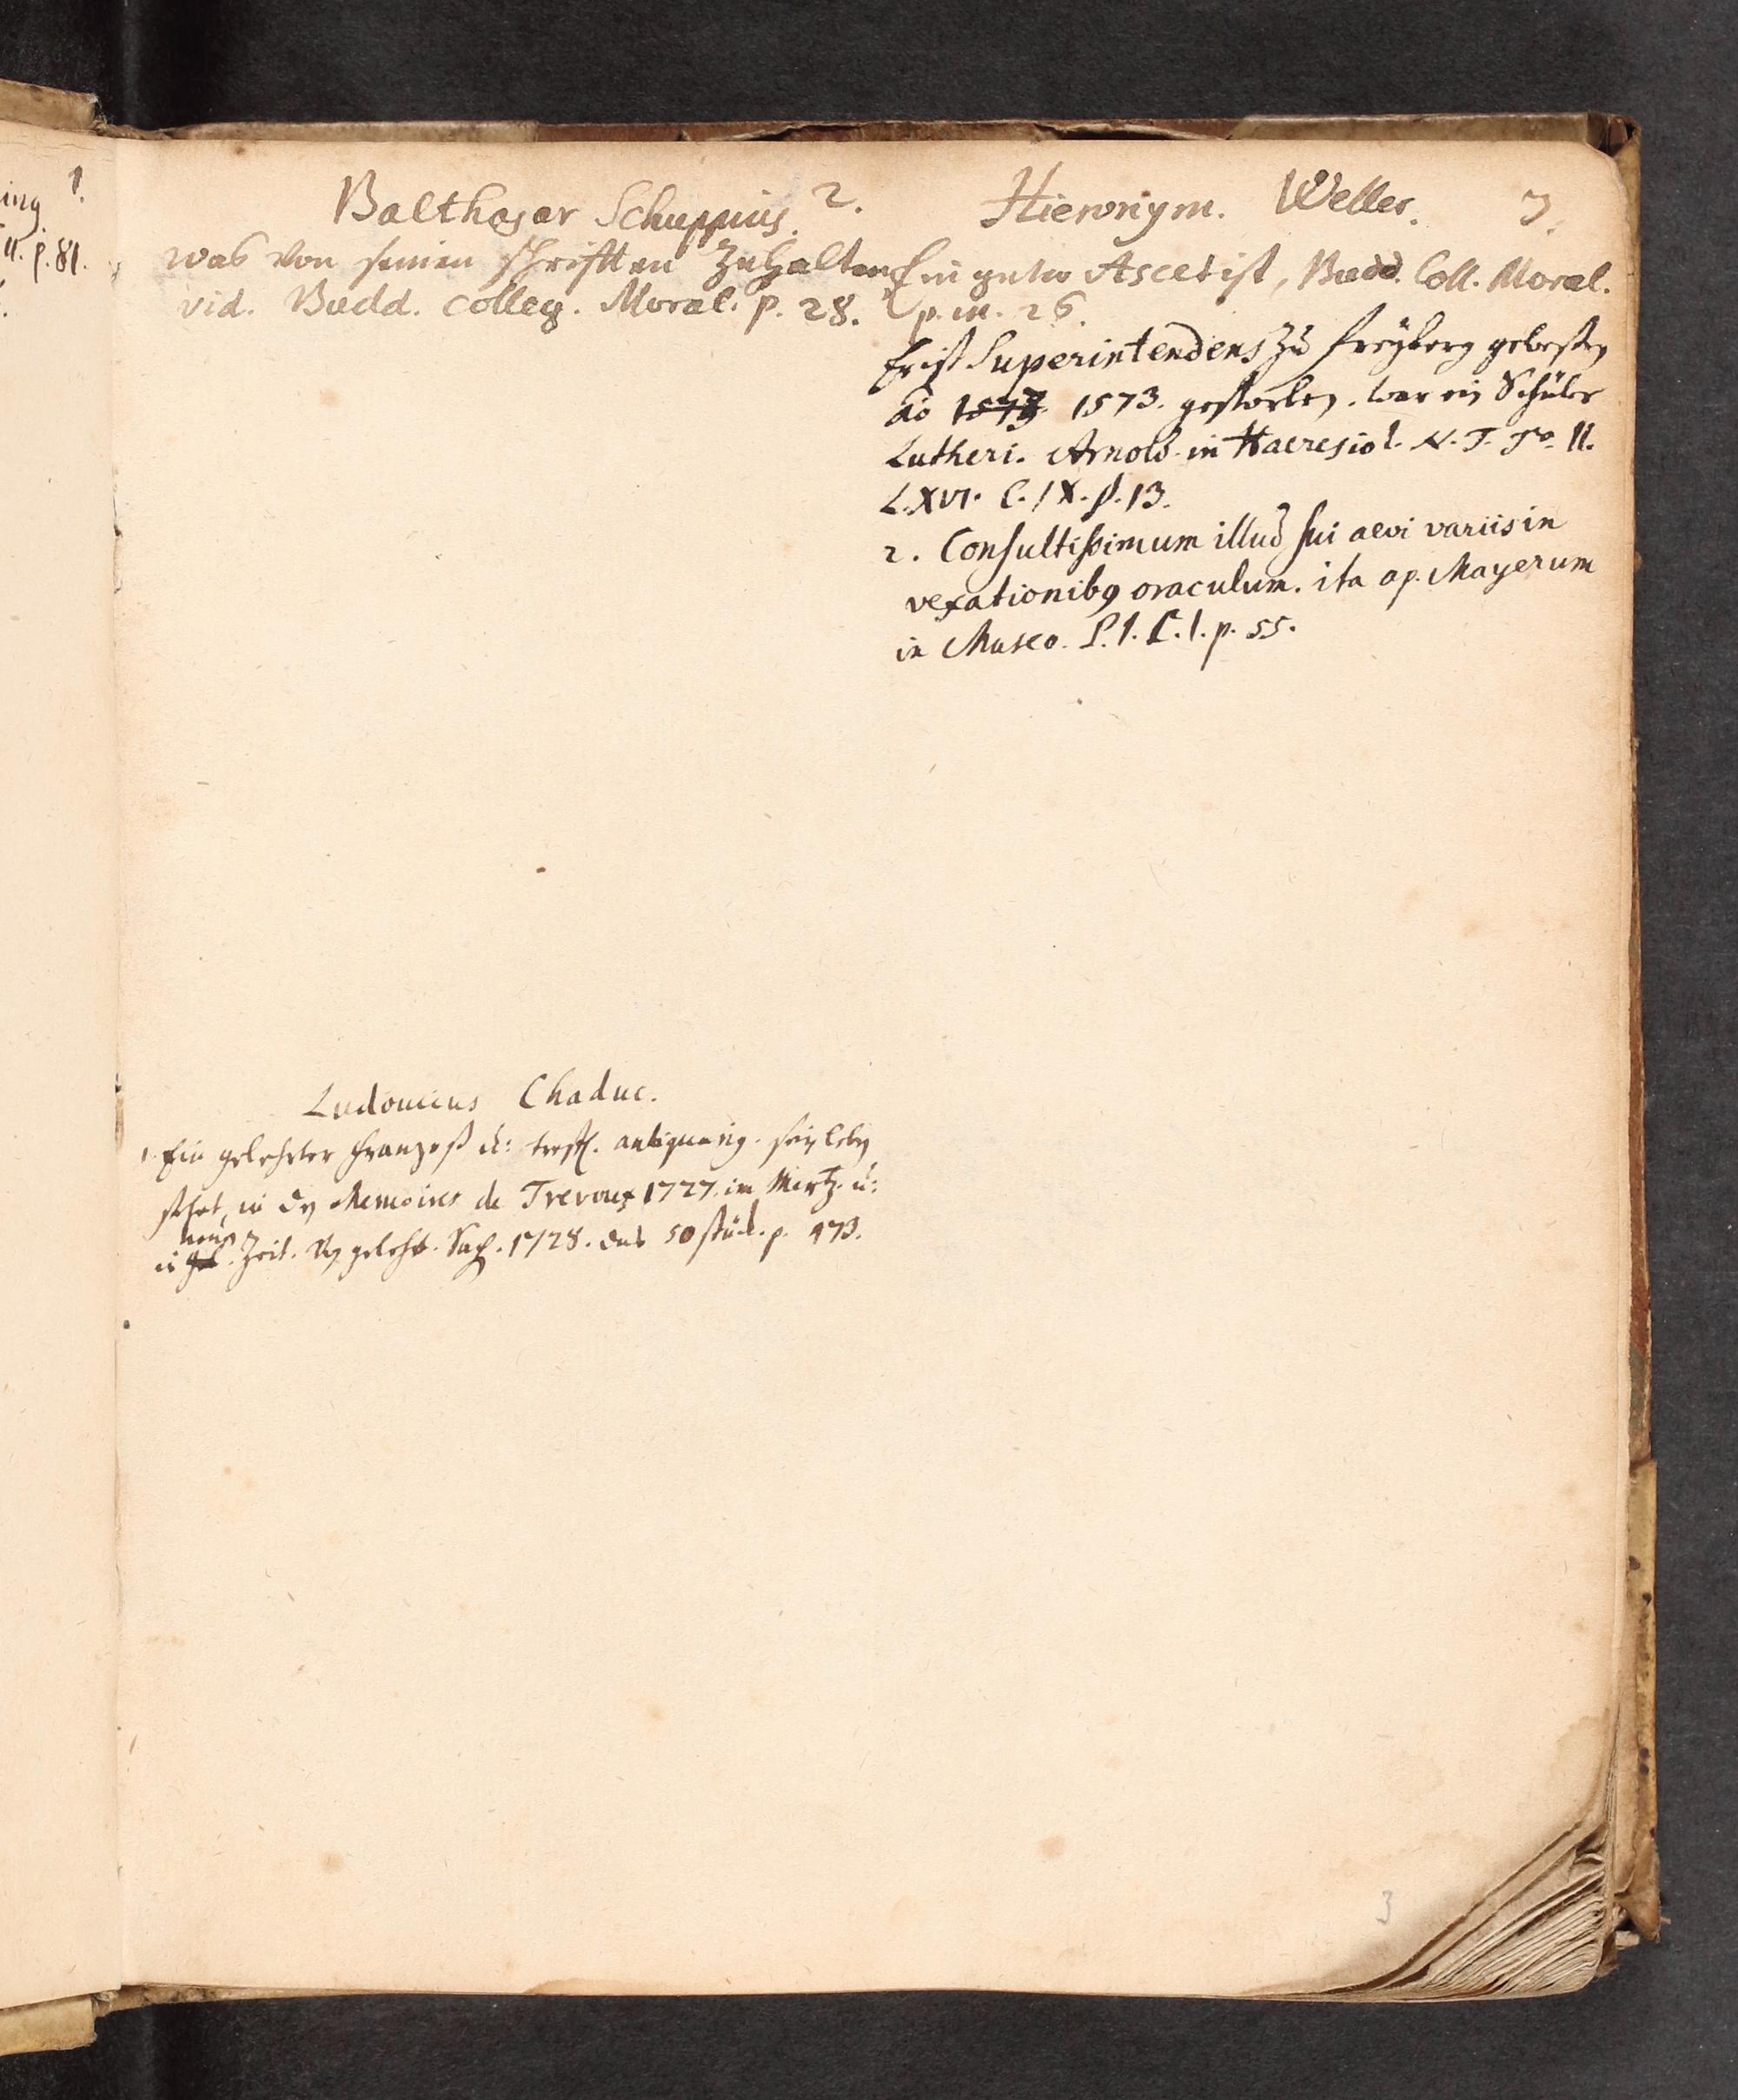 ing 1.
11. p. 81.
Balthasar Schuppius. 2.
was von seinen schrifften zuhalten
vid. Budd. colleg. Moral. p. 28.
Hieronym. Weller. 3.
Ein guter Ascetist, Budd. Coll. Moral.
p. m. 26.
Er ist Superintendens zu Freyberg gewesen
Ao 1573. gestorben. war ein Schüler
Lutheri. Arnold. in Haeresiol. N. T. To. II.
L. XVI. C. IX. §. 13.
2. Consultissimum illud sui aevi variis in
vexationibus oraculum. ita ap. Mayerum
in Museo. P. 1. C. 1. p. 55.
Ludouicus Chaduc.
1. Ein gelehrter Franzoß u: treffl. antiquarius. sein leben
stehet, in den Memoires de Trevoux 1727. im Mertz. u:
in neuen Zeit. von gelehrt. Sach. 1728. das 50 stück. p. 473.
3